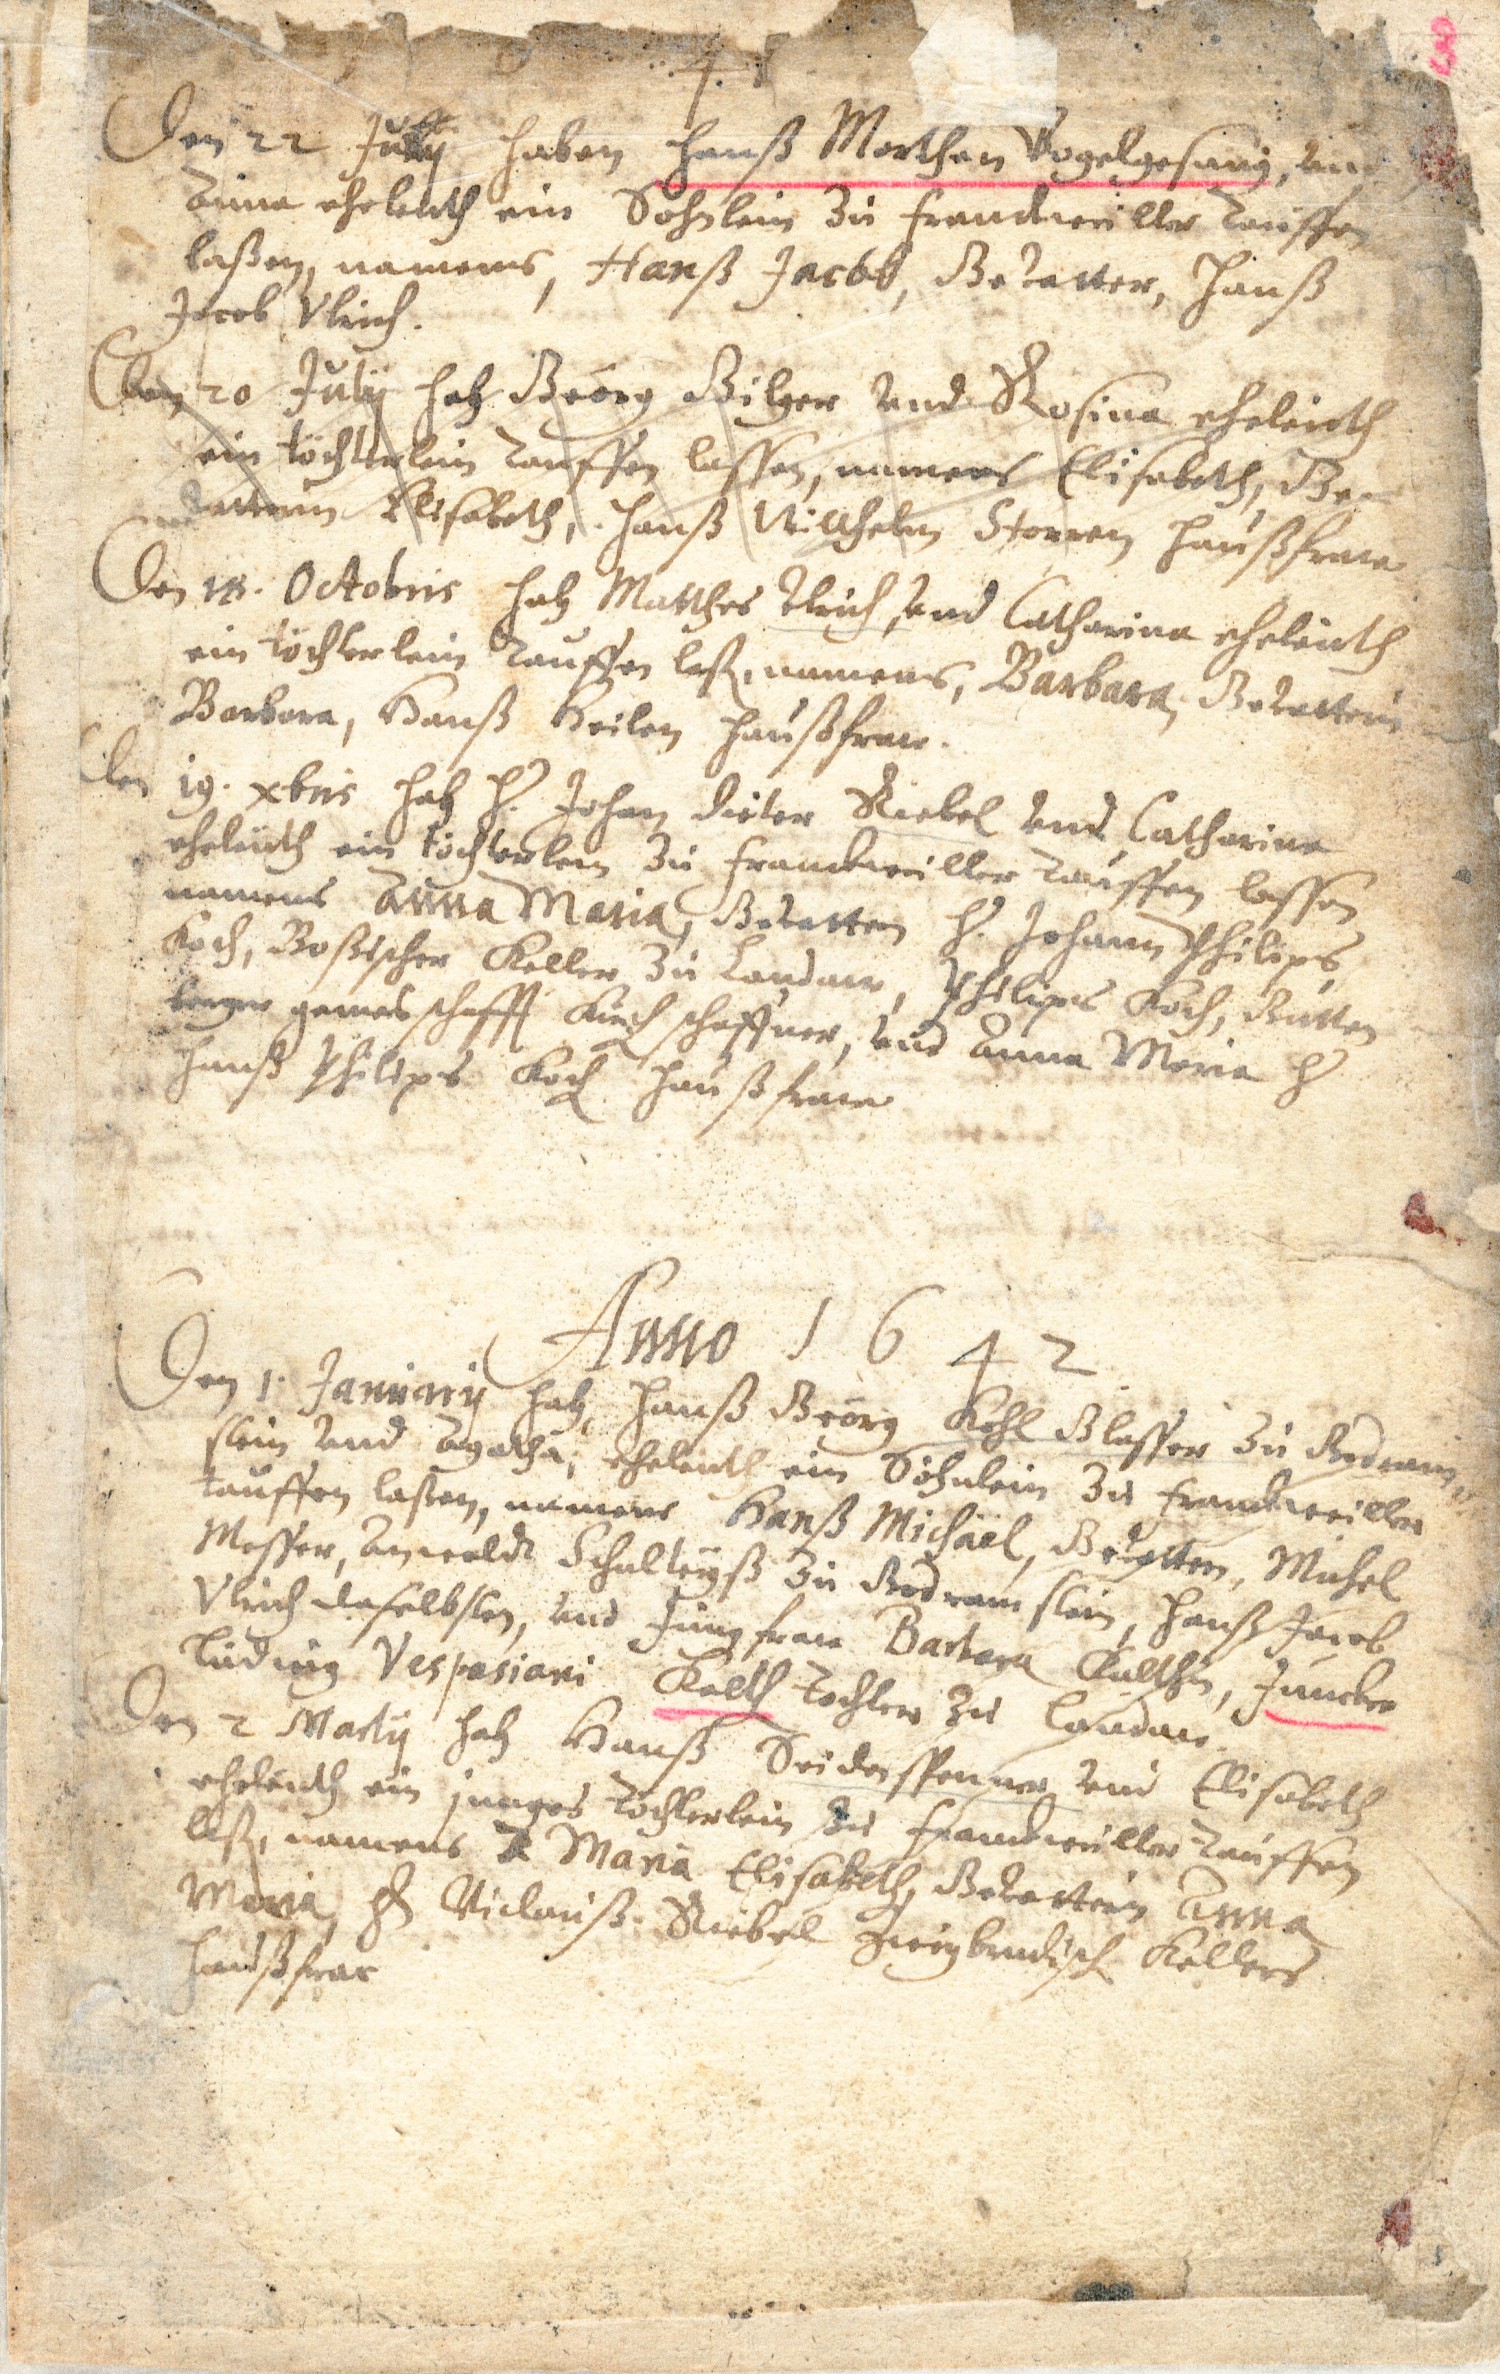 4.
3
Den 22 July haben Hanß Marthen Vogelgesang, und
Anna eheleuth ein Sohnlein zu Franckweiller Tauffen
laßen, namens, Hanß Jacob, Gevatter, Hanß
Jacob Vlrich.
Den 20 July hatt Geörg Bilger und Rosina eheleuth
ein töchterlein Tauffen lassen, namens Elisabeth, Ge-
vatterin Elisabeth, Hanß Willhelm Storren Haußfraw
Den 18. Octobris hatt Matthes Vlrich, und Catharina eheleuth
ein töchterlein Tauffen laß. namens, Barbara, Gevatterin
Barbara, Hanß Keilen Haußfraw.
Den 19. xbris hatt H. Johan Dieter Riebel und Catharina
eheleuth ein töchterlein zu Franckweiller Tauffen lassen
namens Anna Maria, Gevattern H. Johann Philips
Koch, Keller zu Landaw, Philips Koch, Gutten
berger gemeinschafft Kirchschaffner, und Anna Maria H
Hanß Philips Koch Haußfraw
Anno 1642
Den 1. January hatt Hanß Geörg Kohl Glasser zu Godram
stein und Agatha, eheleuth ein Söhnlein zu Franckweiller
tauffen laßen, namens Hanß Michäel, Gevattern, Michel
Messer, Anwaldt Schulteyß zu Godramstein, Hanß Jacob
Vlrich daselbsten, und Jungfraw Barbara Kalthin, Juncker
Ludwig Vespasiani Kalth Tochter zu Landaw.
Den 2 Martij hatt Hanß Seidenspenner und Elisabeth
eheleuth ein junges Töchterlein zu Franckweiller Tauffen
laß. namens Maria Elisabeth, Gevatterin Anna
Maria, H Niclauß Riebel Zweybrückisch Kellers
Haußfraw